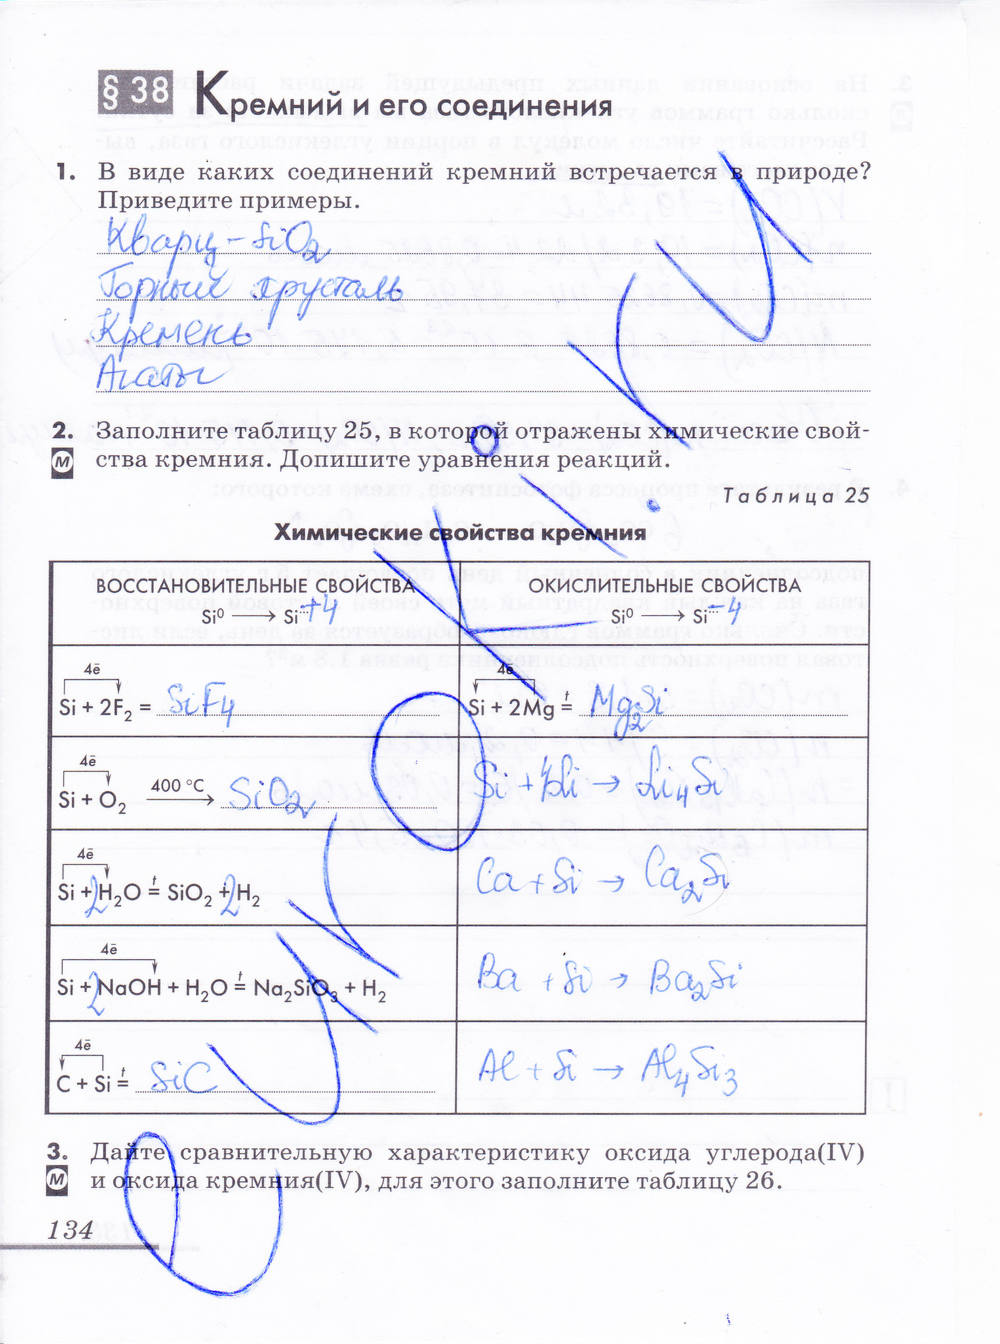 § 38 Кремний и его соединения
1. В виде каких соединений кремний встречается в природе?
Приведите примеры.
Кварц – SiO₂
Горный хрусталь
Кремень
Агаты
2. Заполните таблицу 25, в которой отражены химические свой-
М ства кремния. Допишите уравнения реакций.
Таблица 25
Химические свойства кремния
ВОССТАНОВИТЕЛЬНЫЕ СВОЙСТВА
Si⁰ ⟶ Si⁺⁴
ОКИСЛИТЕЛЬНЫЕ СВОЙСТВА
Si⁰ ⟶ Si⁻⁴
4ē
Si + 2F₂ = SiF₄
4ē
Si + 2Mg =ᵗ Mg₂Si
4ē
Si + O₂ 400 °C ⟶ SiO₂
Si + 4Li → Li₄Si
4ē
Si + 2H₂O =ᵗ SiO₂ + 2H₂
Ca + Si → Ca₂Si
4ē
Si + 2NaOH + H₂O =ᵗ Na₂SiO₃ + H₂
Ba + Si → Ba₂Si
4ē
C + Si =ᵗ SiC
Al + Si → Al₄Si₃
3. Дайте сравнительную характеристику оксида углерода(IV)
М и оксида кремния(IV), для этого заполните таблицу 26.
134